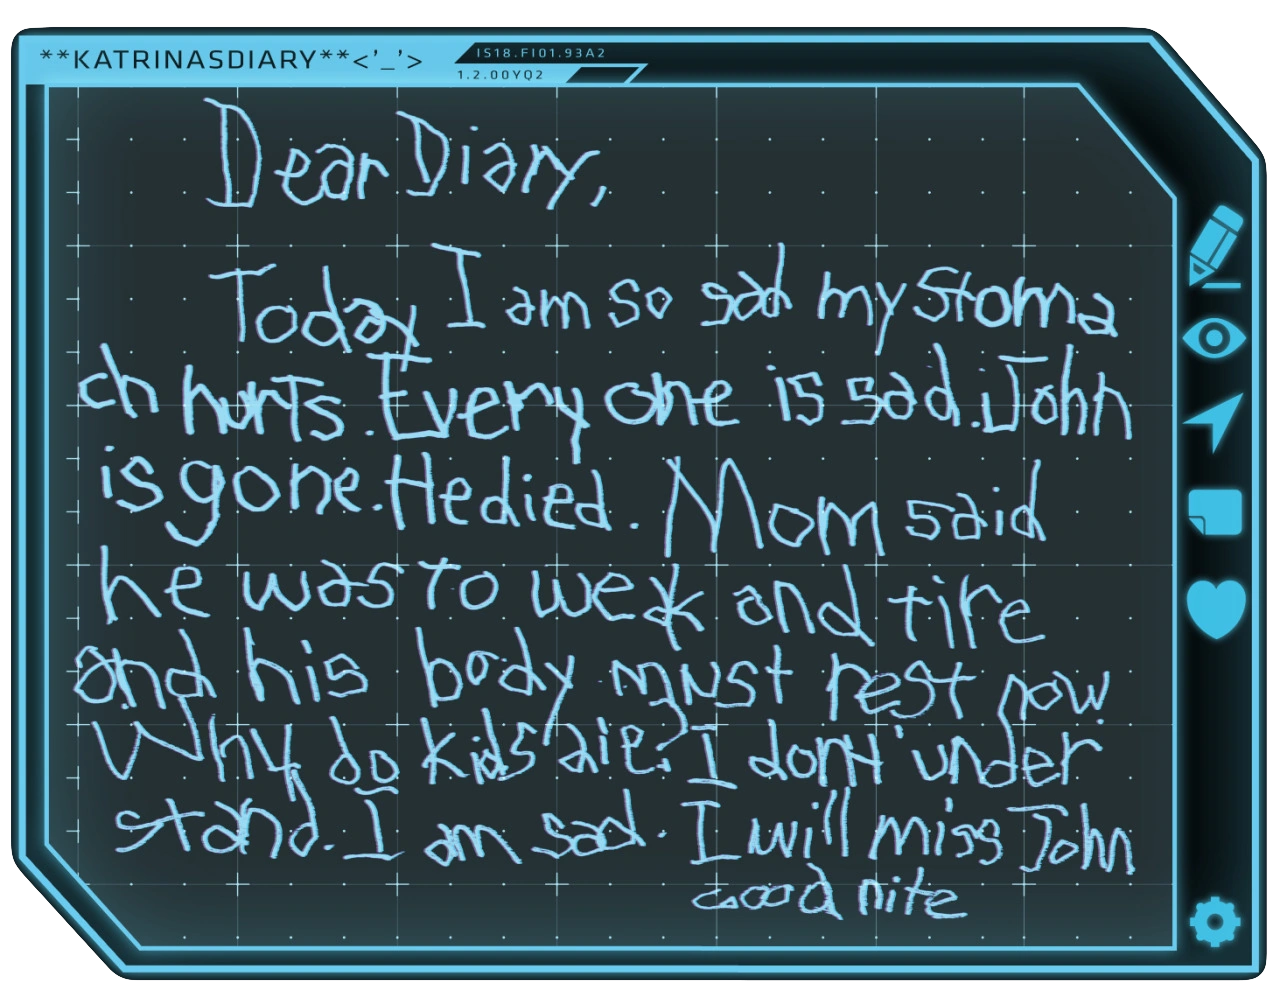 **KATRINASDIARY**<'_'>
IS18.FI01.93A2
1.2.00YQ2
Dear Diary,
Today I am so sad my stoma
ch hurts. Every one is sad. John
is gone. He died. Mom said
he was to weak and tire
and his body must rest now
Why do kids die? I dont under
stand. I am sad. I will miss John
Good nite